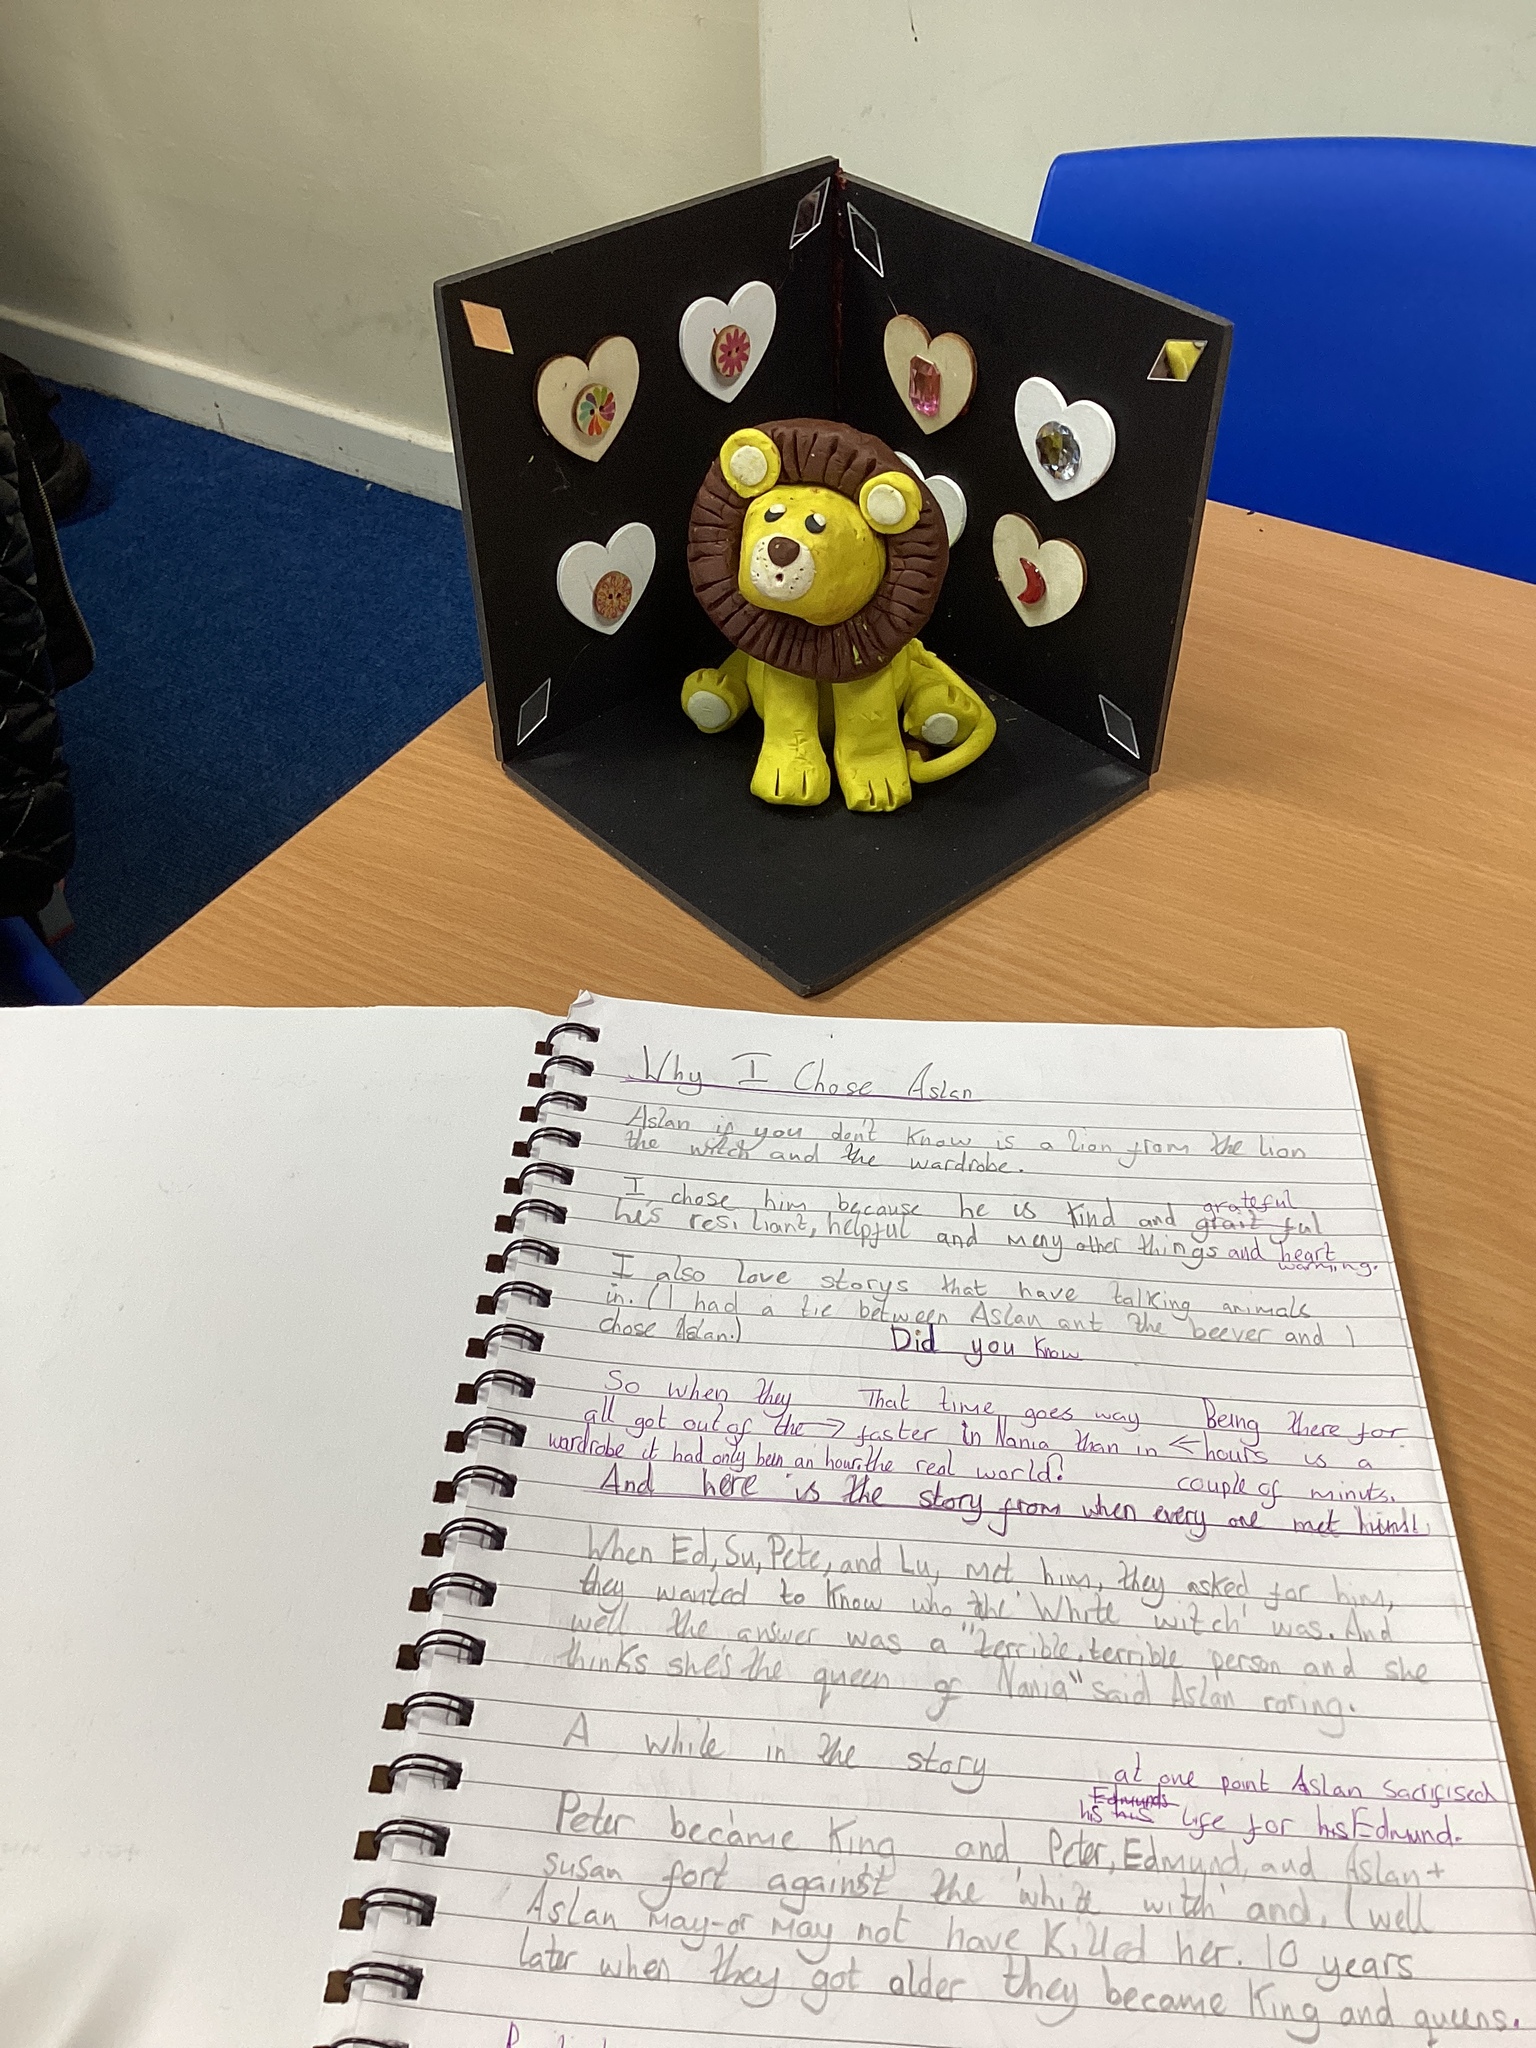 Why I Chose Aslan
Aslan if you don't know is a lion from the lion
the witch and the wardrobe.
I chose him because he is kind and grateful
grait ful
he's resiliant, helpful and meny other things and heart
warming.
I also love storys that have talking animals
in. (I had a tie between Aslan ant the beever and I
chose Aslan.)
Did you know
So when they
all got out of the →
wardrobe it had only been an hour.
That time goes way
faster in Nania than in
the real world?
Being there for
← hours is a
couple of minuts.
And here is the story from when every one met him!
When Ed, Su, Pete, and Lu, met him, they asked for him,
they wanted to know who the 'White witch' was. And
well the answer was a "terrible, terrible person and she
thinks she's the queen of Nania" said Aslan roring.
A while in the story
at one point Aslan sacrifised
Edmunds
his his life for his Edmund.
Peter became King and Peter, Edmund, and Aslan+
susan fort against the 'white witch' and, (well
Aslan may-or may not have killed her. 10 years
later when they got older they became King and queens.